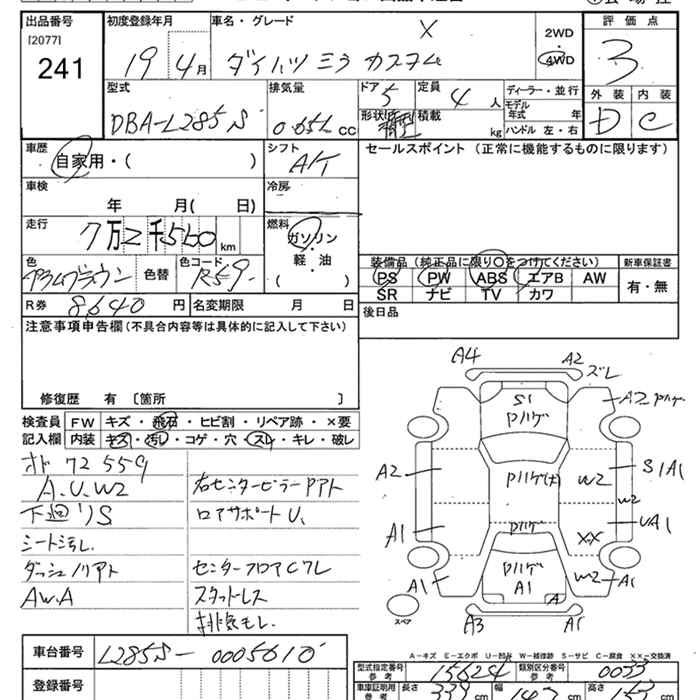 出品番号 初度登録年月 車名・グレード 評価点
[2077] 2WD
241 19年4月 ダイハツミラカスタム X 4WD 3
型式 排気量 ドア 定員 ディーラー・並行 外装 内装
DBA-L285S 0.65L cc 5 4人 モデル年式 年 D C
形状 積載 kg ハンドル 左・右
車歴 シフト セールスポイント (正常に機能するものに限ります)
自家用・( ) A/T
車検 冷房
年 月( 日)
走行 燃料
7万2千550km ガソリン・軽・油 ( )
装備品 (純正品に限り○をつけてください) 新車保証書
色 色替 色コード PS PW ABS エアB AW 有・無
R59 SR ナビ TV カワ
R券 8,640円 名変期限 月 日 後日品
注意事項申告欄 (不具合内容等は具体的に記入して下さい)
修復歴 有 〔箇所 〕
検査員 FW キズ・飛石・ヒビ割・リペア跡・×要
記入欄 内装 キズ・汚レ・コゲ・穴・スレ・キレ・破レ
オド 72559
A.U.W2 右センターピラーPアト
下廻リS ロアサポートU.
シート汚し.
ダッシュノリアト センターフロアCワレ
AW.A スタットレス
排気モレ.
A4 A2 ズレ
S1 Pハゲ A2 Pハゲ
A2 Pハゲ(大) W2 S1A1
W2
A1 Pハゲ XX UA1
A1 Pハゲ A1 A W2 A1
スペア A3 A1
A-キズ E-エクボ U-凹み W-補修跡 S-サビ C-腐食 XX-交換済
車台番号 L285S-0005610
型式指定番号 参考 15624 類別区分番号 参考 0033
登録番号
車庫証明用 参考 長さ 339cm 幅 147cm 高さ cm